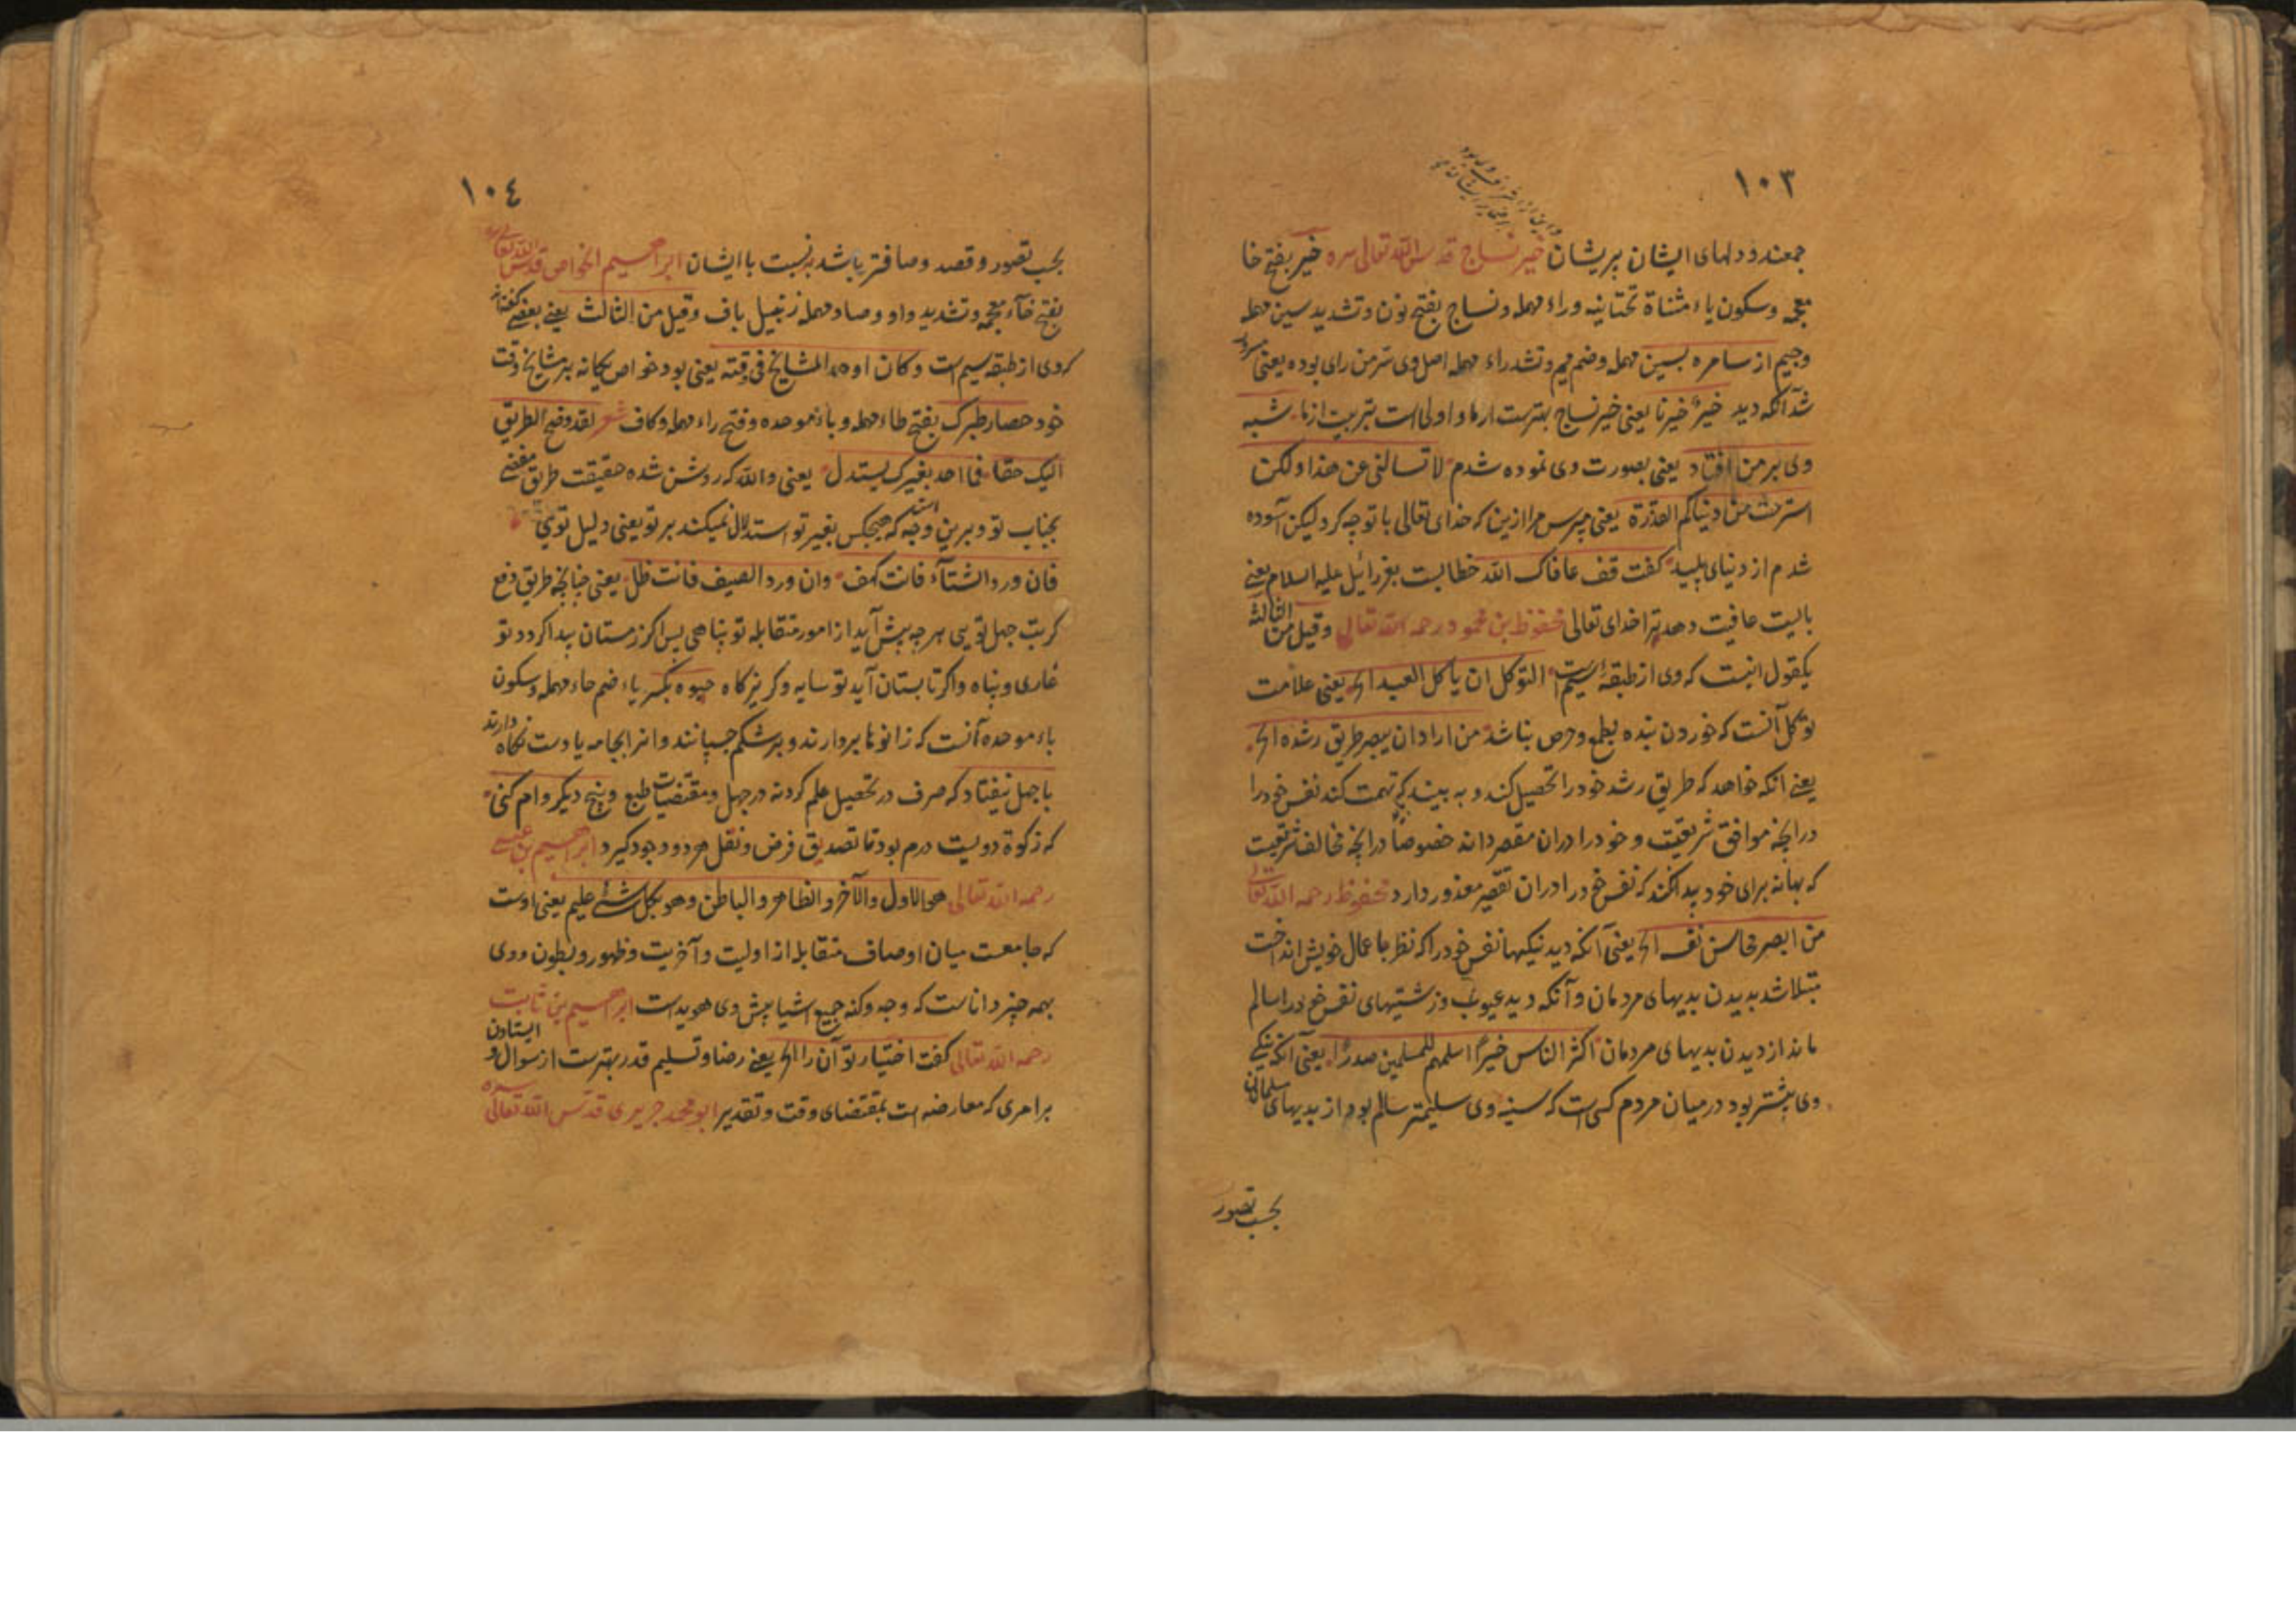 ١٠٣
جمعند و دلهای ایشان پریشان خیر نساج قدس الله تعالی سره خیر بفتح خا
معجمه وسکون یاء مثناة تحتانیه وراء مهمله ونساج بفتح نون وتشدید سین مهمله
وجیم از سامره بسین مهمله وضم میم وتشد راء مهمله اصل وی سر من رای بوده یعنی مسرور
شد آنکه دید خیرٌ خیرنا یعنی خیر نساج بهترست از ما و اولی است بتربیت از ما شبه
وی بر من افتاد یعنی بصورت وی نموده شدم لا تسالنی عن هذا ولکن
استرحت من دنیاکم القذرة یعنی مپرس مرا ازین که خدای تعالی با تو چه کرد لیکن آسوده
شدم از دنیای پلید کفت قف عافاک الله خطابست بعزرائیل علیه السلام یعنی
بایست عافیت دهد ترا خدای تعالی محفوظ بن محمود رحمه الله تعالی وقیل من الثالثة
یکقول اینست که وی از طبقهٔ سیم است التوکل ان یاکل العبد الخ یعنی علامت
توکل آنست که خوردن بنده بطمع وحرص نباشد من اراد ان یبصر طریق رشده الخ
یعنی انکه خواهد که طریق رشد خود را تحصیل کند و به بیند کو تهمت کند نفس خود را
درانچه موافق شریعت و خود را دران مقصر داند خصوصاً درانچه مخالف شریعت
که بهانه برای خود پیدا نکند که نفس خود را دران تقصیر معذور دارد محفوظ رحمه الله تعالی
من ابصر محاسن نفسه الخ یعنی آنکه دید نیکیها نفس خود را که نظر باعمال خویش انداخت
مبتلا شد بدیدن بدیهای مردمان و آنکه دید عیوب و زشتیهای نفس خود را سالم
ماند از دیدن بدیهای مردمان اکثر الناس خیراً اسلمهم للمسلمین صدرًا یعنی آنکه نیکی
وی بیشتر بود در میان مردم کسی است که سینه وی سلیمتر سالم بود از بدیهای مسلمانان
بحسب تصور
١٠٤
بحسب تصور و قصد و صافتر باشد نسبت با ایشان ابراهیم الخواص قدس الله تعالی سره
بفتح خآء معجمه وتشدید واو وصاد مهمله زنبیل باف وقیل من الثالث یعنی بعضی کفته اند
که وی از طبقه سیم است وکان اوحد المشایخ فی وقته یعنی بود خواص یکانه بر مشایخ وقت
خود حصار طبرک بفتح طاء مهمله وباء موحده وفتح راء مهمله وکاف شعر لقد وضح الطریق
الیک حقا فما احد بغیرک یستدل یعنی والله که روشن شده حقیقت طریق مفضی
بجناب تو و برین وجه است که هیچکس بغیر تو استدلال نمیکند بر تو یعنی دلیل تویی
فان ورد الشتآء فانت کهف وان ورد الصیف فانت ظل یعنی چنانچه طریق دفع
کربت جهل تویی هر چه پیش آید از امور متقابله تو پناهی پس اکر زمستان پیدا کردد تو
غاری و پناه و اکر تابستان آید تو سایه و کریزکاه حبوه بکسر یاء ضم حاء مهمله وسکون
باء موحده آنست که زانوها بردارند و بر شکم چسپانند و انرا بجامه یا دست نکاه دارند
با جهل نیفتاد که صرف در تحصیل علم کردنه در جهل ومقتضیات طبع وپنج دیکر وام کنی
که زکوة دویست درم بود تا تصدیق فرض ونفل هر دو وجود کیرد ابراهیم بن عیسی
رحمه الله تعالی هو الاول والآخر والظاهر والباطن وهو بکل شئ علیم یعنی اوست
که جامعست میان اوصاف متقابله از اولیت وآخریت وظهور وبطون ووی
بهمه چیز داناست که وجه وکنه جمیع اشیا پیش وی هویداست ابراهیم بن ثابت
رحمه الله تعالی کفت اختیار تو آن را الخ یعنی رضا وتسلیم قدر بهترست از سوال و ایستادن
برامری که معارضه است بمقتضای وقت وتقدیر ابو محمد جریری قدس الله تعالی سره